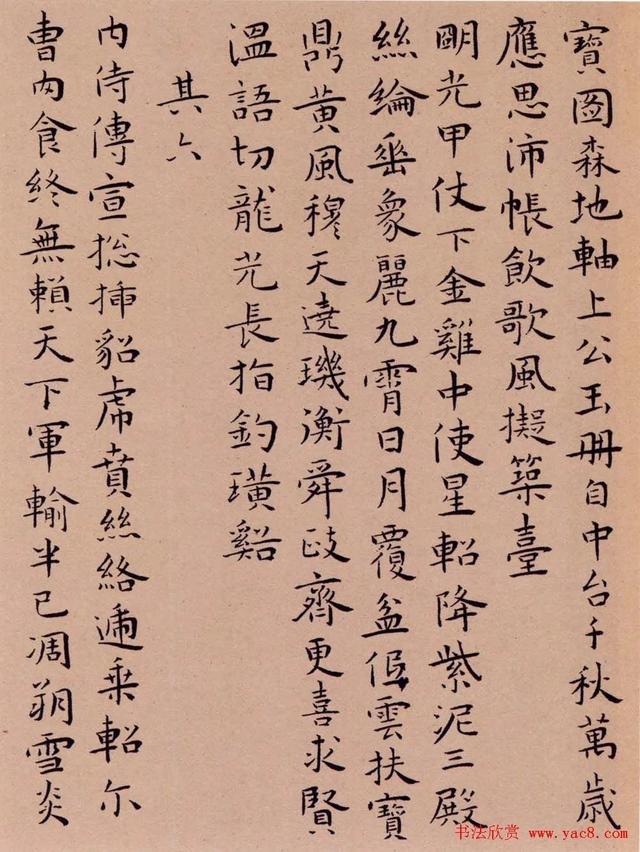 寶圖森地軸上公玉冊自中台千秋萬歲
應思沛帳飲歌風擬築臺
明光甲仗下金雞中使星軺降紫泥三殿
絲綸垂象麗九霄日月覆盆低雲扶寶
鼎黃風穆天遶璣衡舜政齊更喜求賢
溫語切龍光長指釣璜谿
其六
內侍傳宣摠插貂虎賁絲絡遞乘軺尔
曹肉食終無賴天下軍輸半已凋朔雪炎
书法欣赏 www.yac8.com